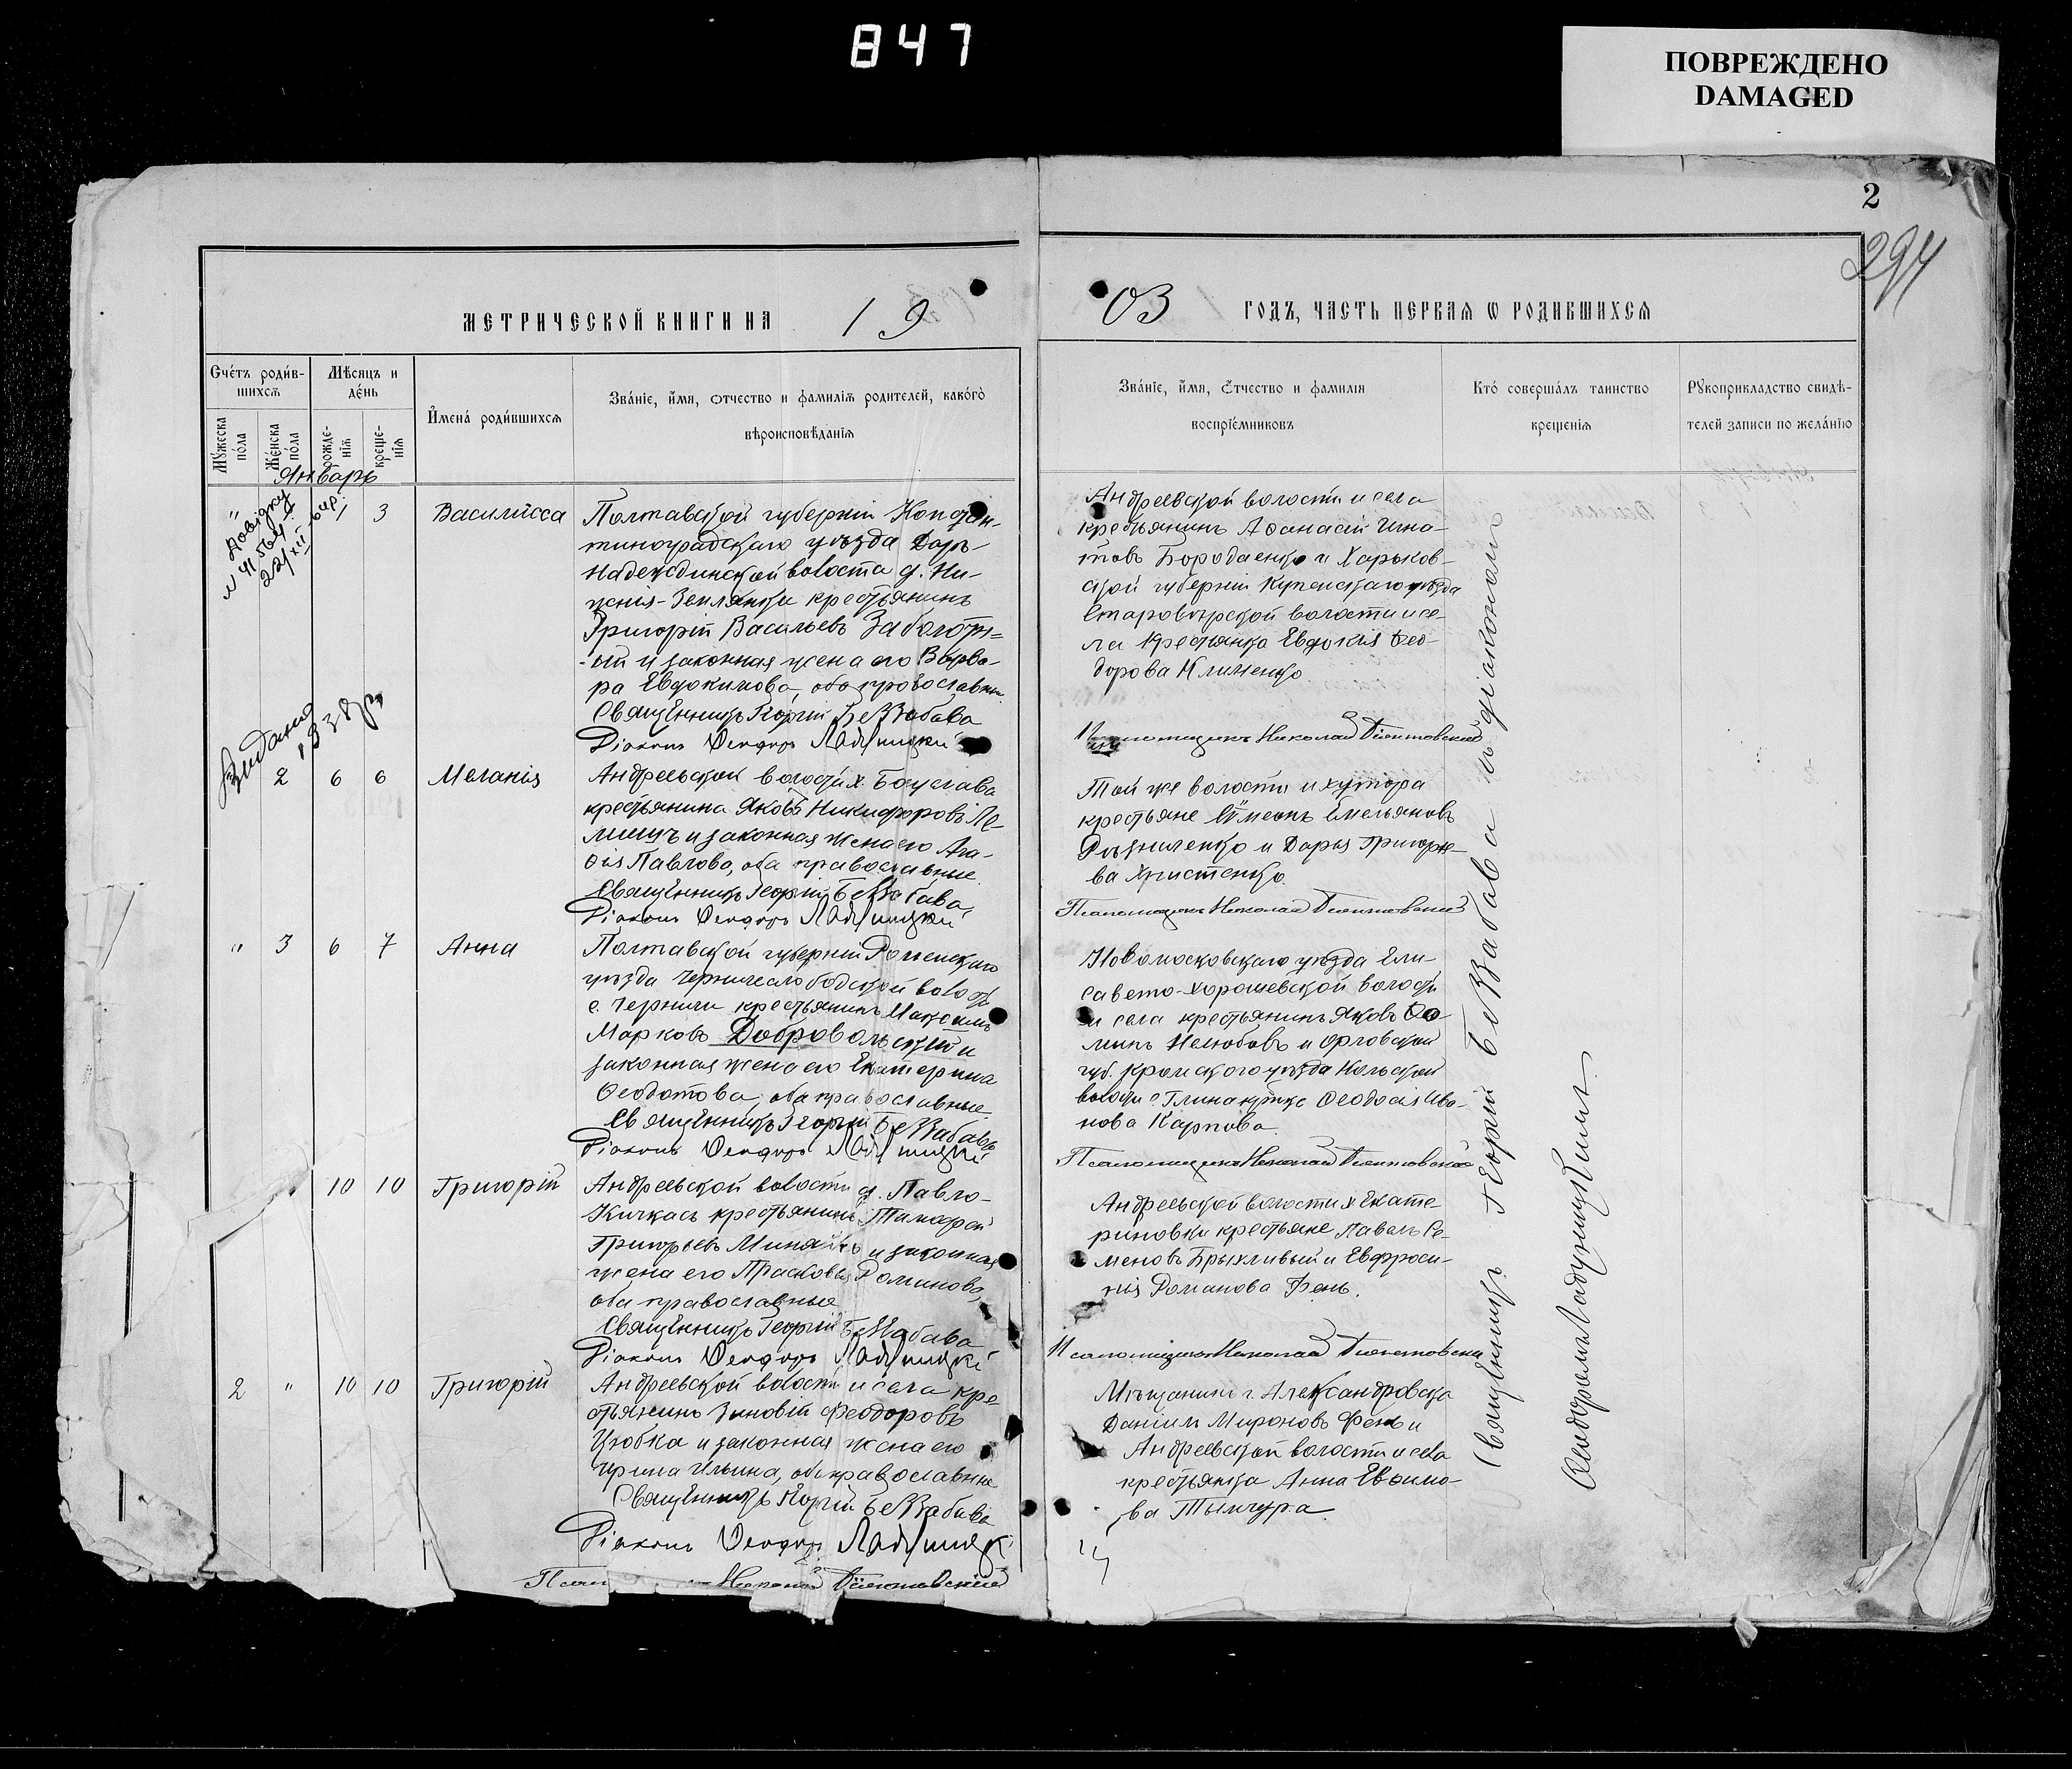 847
ПОВРЕЖДЕНО
DAMAGED
2
294
МЕТРИЧЕСКОЙ КНИГИ НА 19
03 ГОДЪ, ЧАСТЬ ПЕРВАЯ Ѡ РОДИВШИХСЯ
Счетъ родив-
шихся
Мужеска
пола
Женска
пола
Мѣсяцъ и
день
рожде-
нія
креще-
нія
Имена родившихся
Званіе, имя, отчество и фамилія родителей, какого
вѣроисповѣданія
Званіе, имя, отчество и фамилія
воспріемниковъ
Кто совершалъ таинство
крещенія
Рукоприкладство свидѣ-
телей записи по желанію
Январь
1 3 Василисса
Полтавской губерніи Констан-
тиноградскаго уѣзда Дарь-
Надеждинской волости д. Ни-
жнія-Землянки крестьянинъ
Григорій Васильевъ Заболотн-
ый и законная жена его Варва-
ра Евдокимова, оба православн.
Священникъ Георгій Беззабава
Діаконъ Ѳеодоръ
Андреевской волости и села
крестьянинъ Аѳанасій Игна-
товъ Бородаенко и Харьков-
ской губерніи Купянскаго уѣзда
Старовѣрской волости и се-
ла крестьянка Евдокія Ѳео-
дорова Клименко
Псаломщикъ Николай
Видано
2 6 6 Меланія
Андреевской волости х. Богуслава
крестьянина Яковъ Никифоровъ Ле-
мишъ и законная жена его Ага-
ѳія Павлова, оба православные
Священникъ Георгій Беззабава
Діаконъ Ѳеодоръ
Той же волости и хутора
крестьяне Сѵмеонъ Емельяновъ
Рѣзниченко и Дарья Григорье-
ва Христенко
Псаломщикъ Николай
" 3 6 7 Анна
Полтавской губерніи Роменскаго
уѣзда волости
крестьянинъ Максимъ
Марковъ Добровольскій и
законная жена его Екатерина
Ѳеодотова, оба православные
Священникъ Георгій Беззабава
Діаконъ Ѳеодоръ
Новомосковскаго уѣзда Ели-
савето-Хорошевской волости
и села крестьянинъ Яковъ Ѳо-
минъ Нелюбовъ и Орловской
губ. Кромскаго уѣзда
волости с. Ѳеодосія Ива-
нова Карпова
Псаломщикъ Николай
10 10 Григорій
Андреевской волости д. Павло-
Кичкасъ крестьянинъ Тимоѳей
Григорьевъ и законная
жена его Прасковья Романова,
оба православные
Священникъ Георгій Беззабава
Діаконъ Ѳеодоръ
Андреевской волости х Екате-
риновки крестьяне Павелъ Се-
меновъ Брыхливый и Евфроси-
нія Романова Фень.
Псаломщикъ Николай
2 " 10 10 Григорій
Андреевской волости и села кре-
стьянинъ Зиновій Феодоровъ
Цюбка и законная жена его
Ирина Ильина, оба православные
Священникъ Георгій Беззабава
Діаконъ Ѳеодоръ
Николай
Мѣщанинъ г. Александровска
Даніилъ Мироновъ Фень и
Андреевской волости и села
крестьянка Анна Евѳимо-
ва Тымчура.
Священникъ Георгій Беззабава съ діакономъ
Ѳеодоромъ